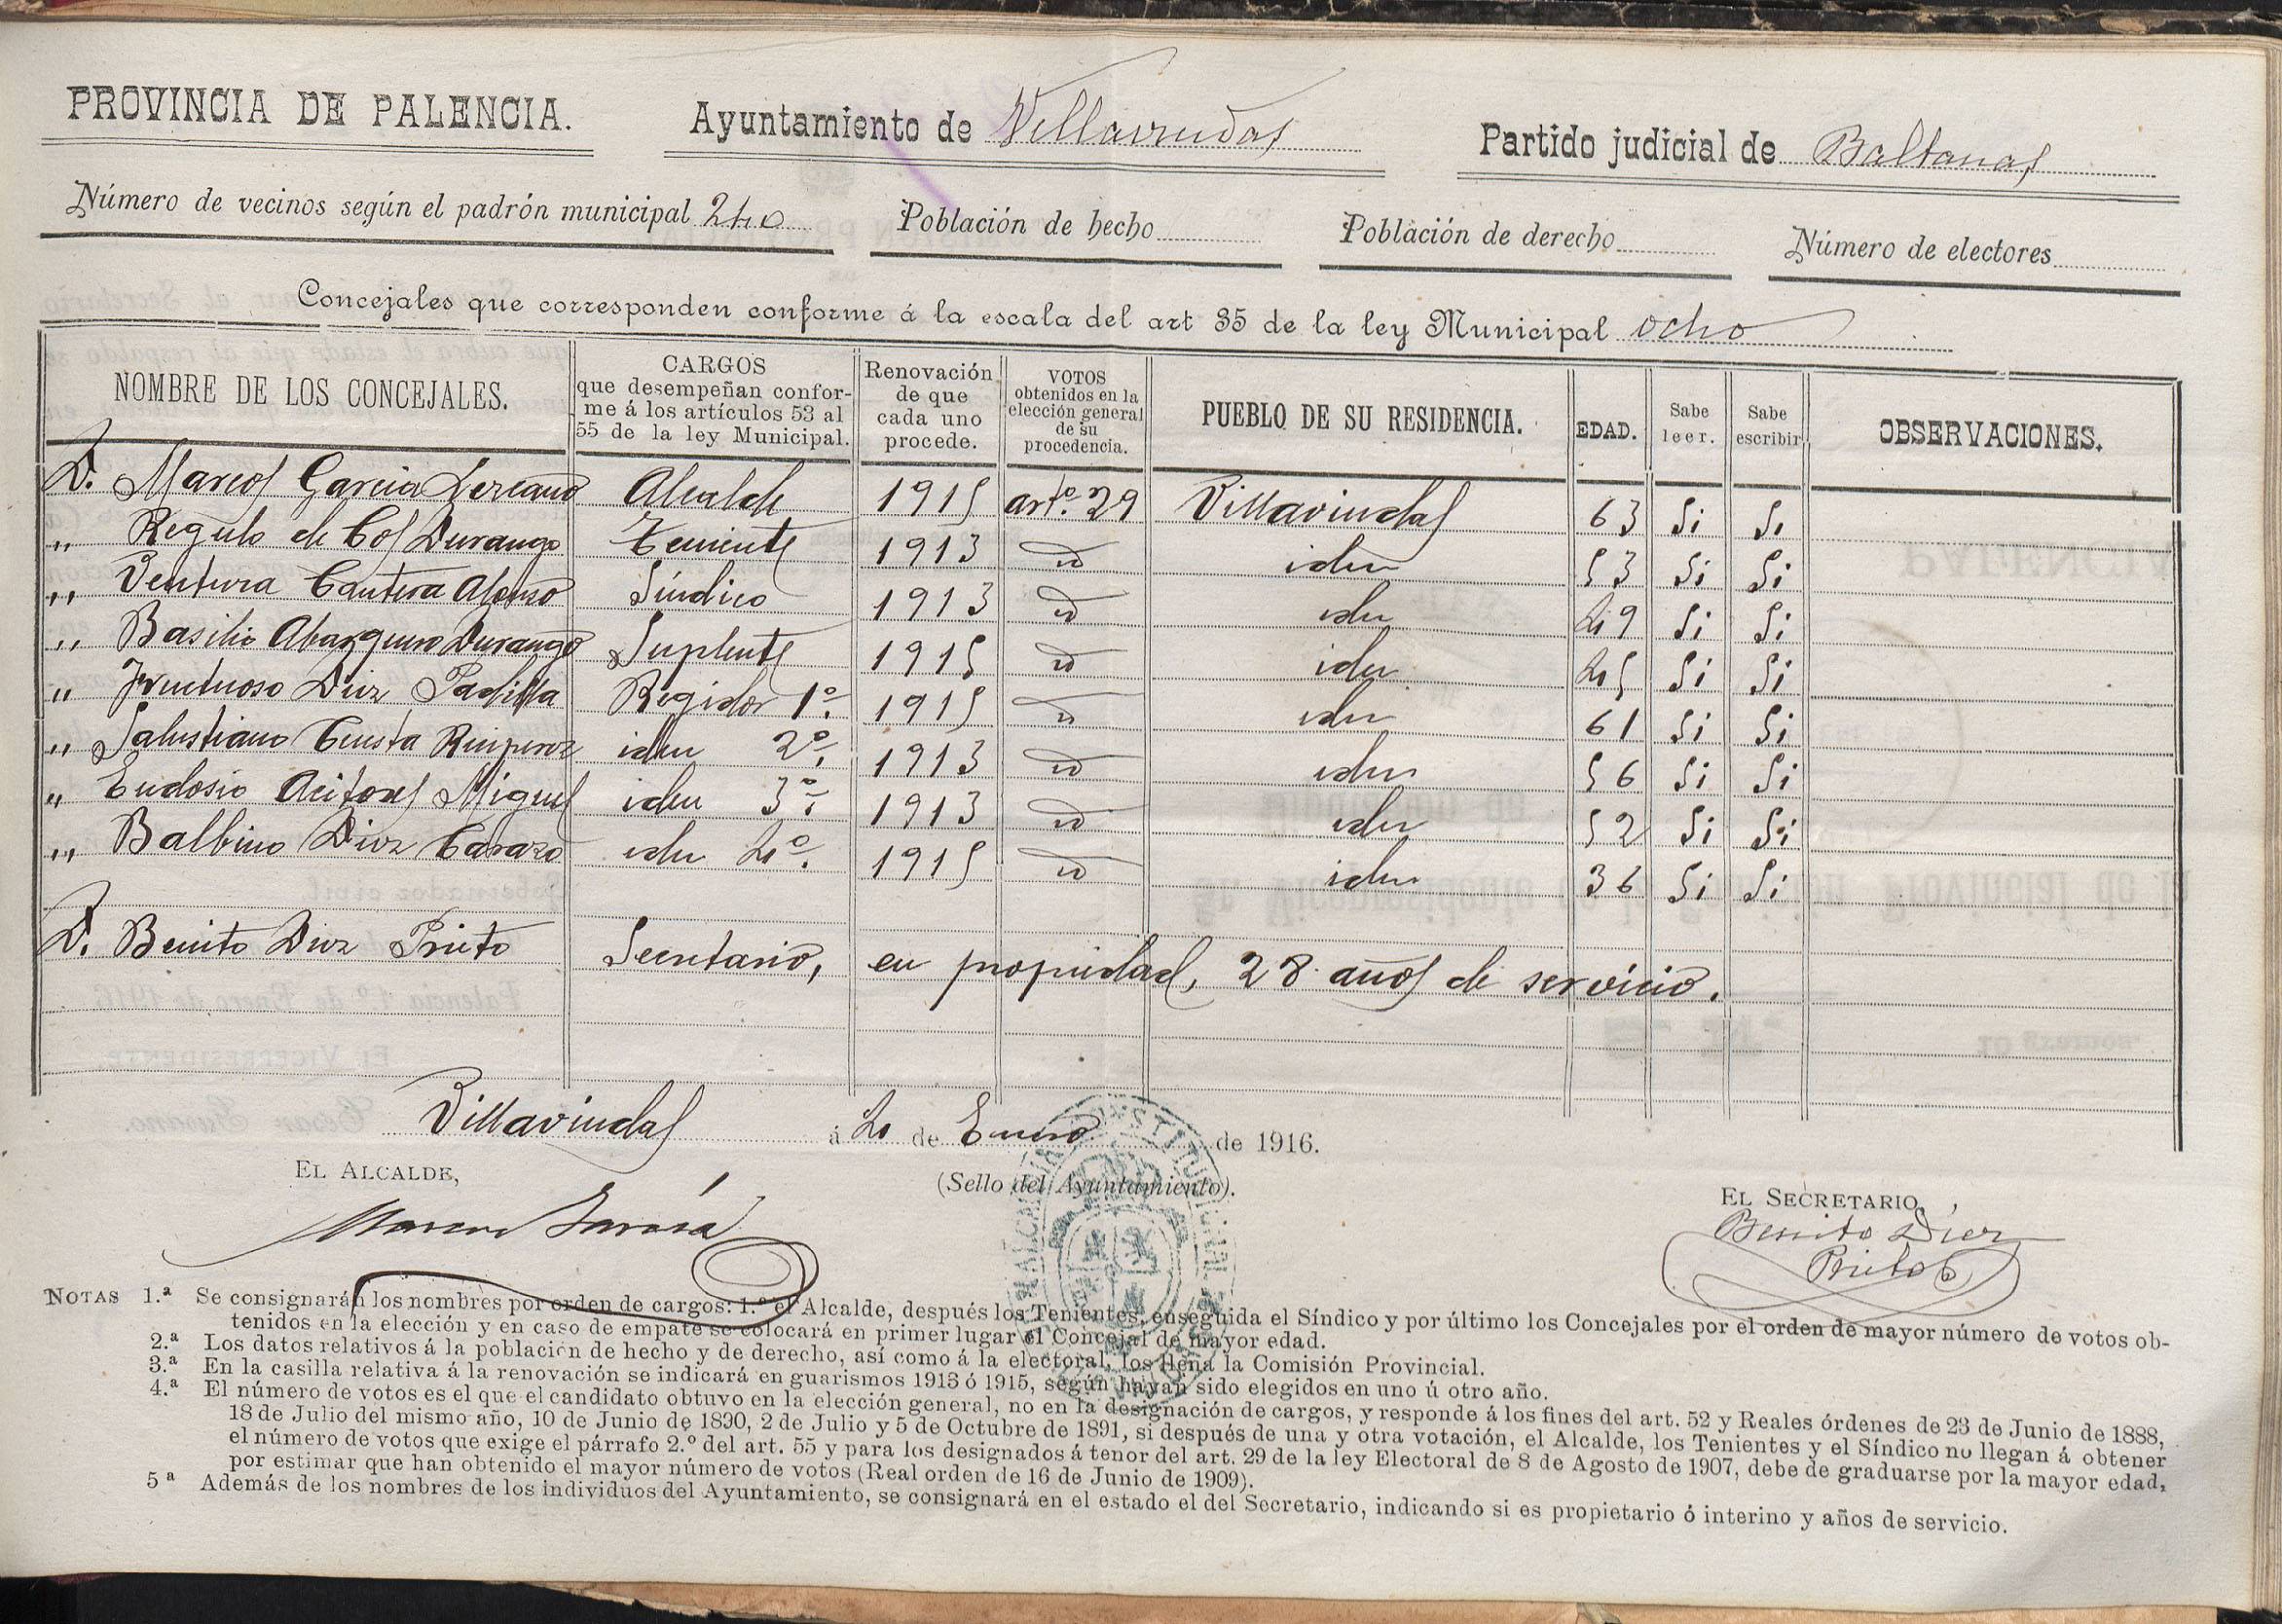 PROVINCIA DE PALENCIA.
Ayuntamiento de Villaviudas
Partido judicial de Baltanas
Número de vecinos según el padrón municipal 240
Población de hecho
Población de derecho
Número de electores
Concejales que corresponden conforme á la escala del art 35 de la ley Municipal ocho
NOMBRE DE LOS CONCEJALES. CARGOS que desempeñan conforme á los artículos 53 al 55 de la ley Municipal. Renovación de que cada uno procede. VOTOS obtenidos en la elección general de su procedencia. PUEBLO DE SU RESIDENCIA. EDAD. Sabe leer. Sabe escribir OBSERVACIONES.
D. Marcos Garcia Lezcano Alcalde 1915 artº. 29 Villaviudas 63 Si Si
" Regulo de Cos Durango Teniente 1913 id idem 53 Si Si
" Ventura Cantera Alonso Síndico 1913 id idem 49 Si Si
" Basilio Abarquero Durango Suplente 1915 id idem 45 Si Si
" Fructuoso Diez Padilla Regidor 1º. 1915 id idem 61 Si Si
" Salustiano Cuesta Ruiperez idem 2º. 1913 id idem 56 Si Si
" Eudosio Acitores Miguel idem 3º. 1913 id idem 52 Si Si
" Balbino Diez Carazo idem 4º. 1915 id idem 36 Si Si
D. Benito Diez Prieto Secretario, en propiedad, 28 años de servicio.
Villaviudas á 4 de Enero de 1916.
EL ALCALDE,
(Sello del Ayuntamiento).
EL SECRETARIO,
Marcos García
Benito Diez
Prieto
NOTAS 1.ª Se consignarán los nombres por orden de cargos: 1.º el Alcalde, después los Tenientes, enseguida el Síndico y por último los Concejales por el orden de mayor número de votos ob-
tenidos en la elección y en caso de empate se colocará en primer lugar el Concejal de mayor edad.
2.ª Los datos relativos á la población de hecho y de derecho, así como á la electoral, los llena la Comisión Provincial.
3.ª En la casilla relativa á la renovación se indicará en guarismos 1913 ó 1915, según hayan sido elegidos en uno ú otro año.
4.ª El número de votos es el que el candidato obtuvo en la elección general, no en la designación de cargos, y responde á los fines del art. 52 y Reales órdenes de 23 de Junio de 1888,
18 de Julio del mismo año, 10 de Junio de 1890, 2 de Julio y 5 de Octubre de 1891, si después de una y otra votación, el Alcalde, los Tenientes y el Síndico no llegan á obtener
el número de votos que exige el párrafo 2.º del art. 55 y para los designados á tenor del art. 29 de la ley Electoral de 8 de Agosto de 1907, debe de graduarse por la mayor edad,
por estimar que han obtenido el mayor número de votos (Real orden de 16 de Junio de 1909).
5ª Además de los nombres de los individuos del Ayuntamiento, se consignará en el estado el del Secretario, indicando si es propietario ó interino y años de servicio.